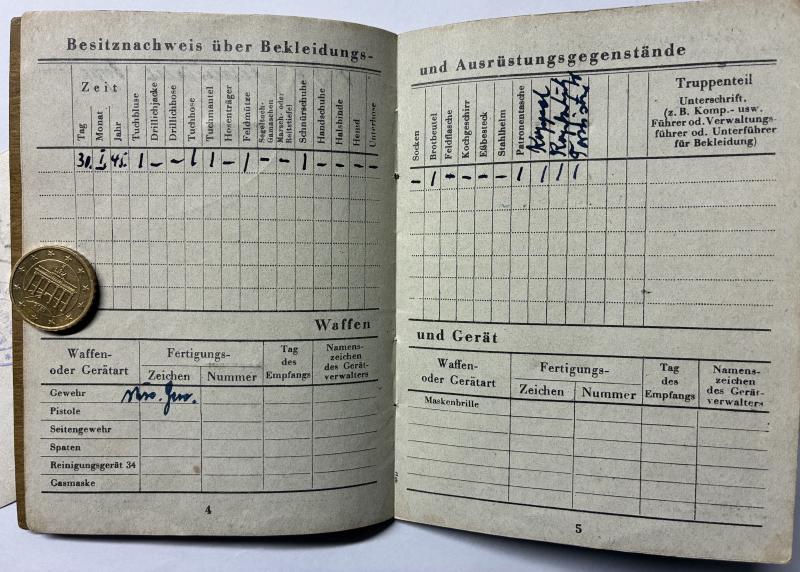 Besitznachweis über Bekleidungs-
Zeit
Tag
Monat
Jahr
Tuchbluse
Drillichjacke
Drillichhose
Tuchhose
Tuchmantel
Hosenträger
Feldmütze
Segeltuch-
Gamaschen
Marsch- oder
Reitstiefel
Schnürschuhe
Handschuhe
Halsbinde
Hemd
Unterhose
30. I. 45. 1 – – 1 1 – 1 – – 1 – – – –
Waffen
Waffen-
oder Gerätart
Fertigungs-
Zeichen
Nummer
Tag
des
Empfangs
Namens-
zeichen
des Gerät-
verwalters
Gewehr
Pistole
Seitengewehr
Spaten
Reinigungsgerät 34
Gasmaske
4
und Ausrüstungsgegenstände
Socken
Brotbeutel
Feldflasche
Kochgeschirr
Eßbesteck
Stahlhelm
Patronentasche
Koppel
Truppenteil
Unterschrift,
(z. B. Komp.- usw.
Führer od. Verwaltungs-
führer od. Unterführer
für Bekleidung)
– 1 – – – – 1 1 1 1
und Gerät
Waffen-
oder Gerätart
Fertigungs-
Zeichen
Nummer
Tag
des
Empfangs
Namens-
zeichen
des Gerät-
verwalters
Maskenbrille
5